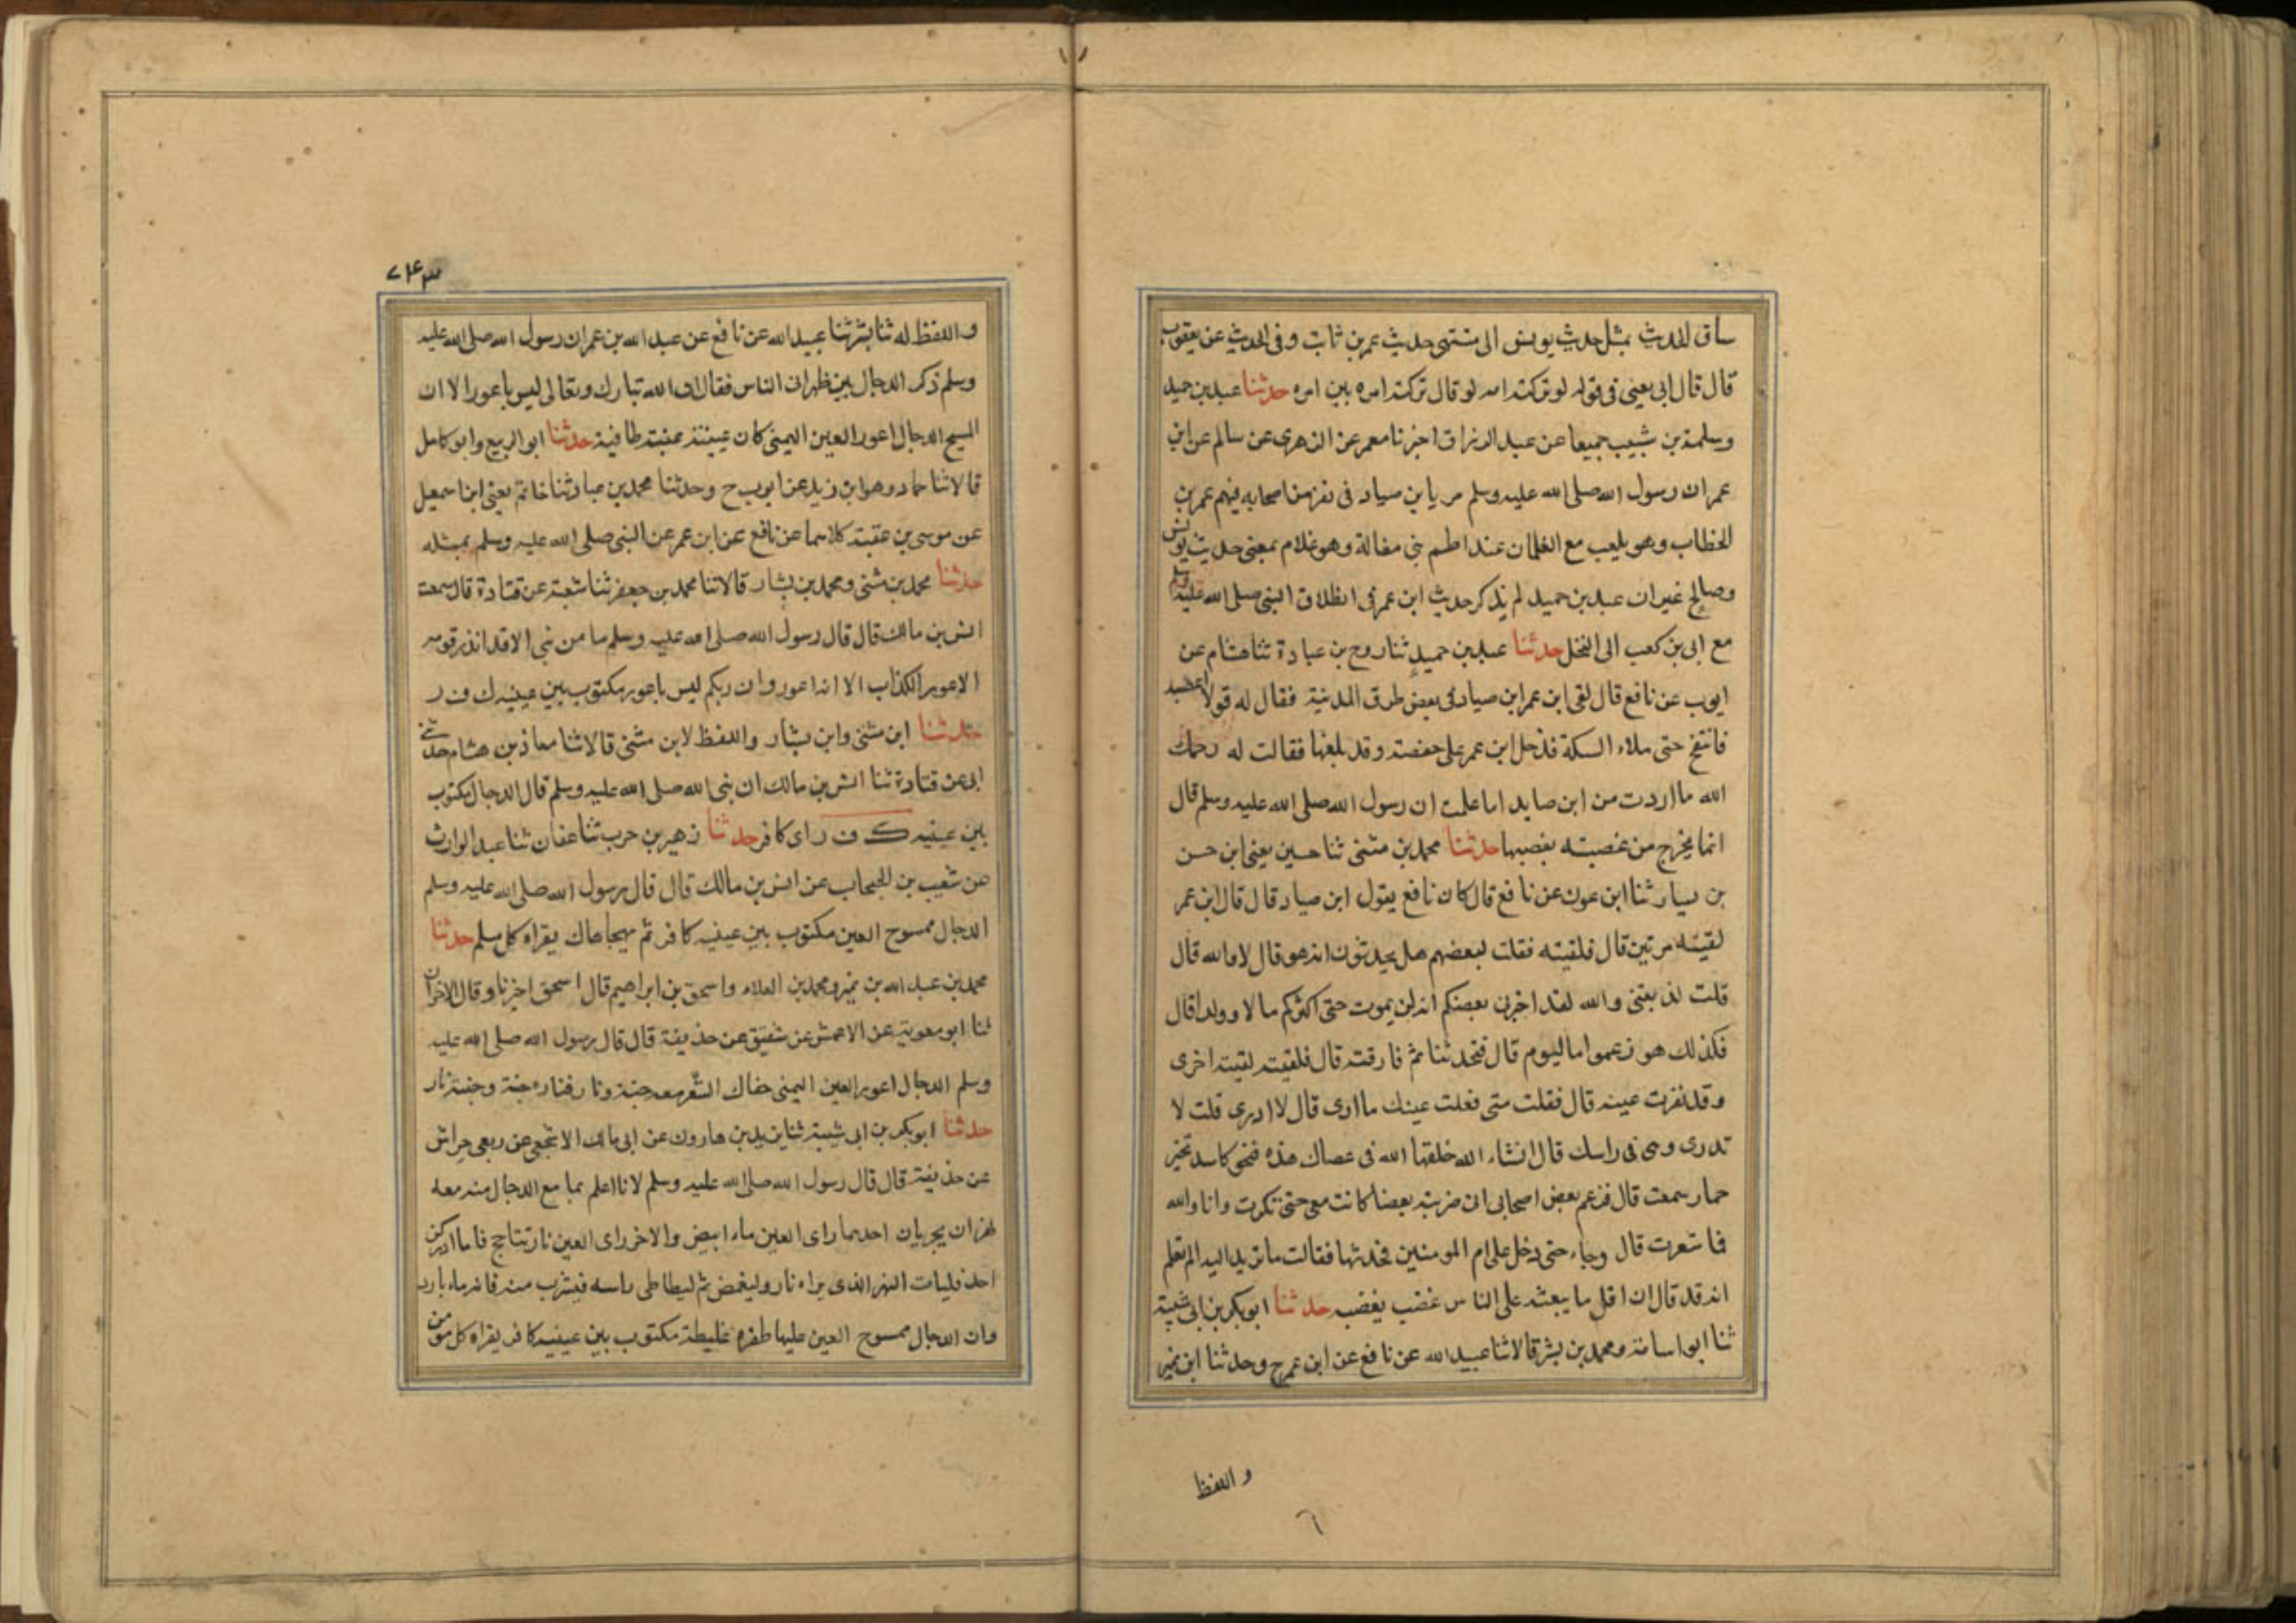 ساق الحديث بمثل حديث يونس الى منتهى حديث عمر بن ثابت وفى الحديث عن يعقوب
قال قال ابى يعنى فى قوله لو تركته امه لو قال تركته امه بين امره حدثنا عبد بن حميد
وسلمة بن شبيب جميعا عن عبد الرزاق اخبرنا معمر عن الزهرى عن سالم عن ابن
عمر ان رسول الله صلى الله عليه وسلم مر بابن صياد فى نفر من اصحابه فيهم عمر بن
الخطاب وهو يلعب مع الغلمان عند اطم بنى مغالة وهو غلام بمعنى حديث يونس
وصالح غير ان عبد بن حميد لم يذكر حديث ابن عمر فى انطلاق النبى صلى الله عليه وسلم
مع ابى بن كعب الى النخل حدثنا عبد بن حميد ثنا روح بن عبادة ثنا هشام عن
ايوب عن نافع قال لقى ابن عمر ابن صياد فى بعض طرق المدينة فقال له قولا اغضبه
فانتفخ حتى ملاء السكة فدخل ابن عمر على حفصة وقد بلغها فقالت له رحمك
الله ما اردت من ابن صايد اما علمت ان رسول الله صلى الله عليه وسلم قال
انما يخرج من غضبته يغضبها حدثنا محمد بن مثنى ثنا حسين يعنى ابن حسن
بن يسار ثنا ابن عون عن نافع قال كان نافع يقول ابن صياد قال قال ابن عمر
لقيته مرتين قال فلقيته فقلت لبعضهم هل يحدثون انه هو قال لا والله قال
قلت كذبتنى والله لقد اخبرنى بعضكم انه لن يموت حتى اكثركم مالا وولدا قال
فكذلك هو زعموا اما اليوم قال فتحدثنا ثم فارقته قال فلقيته لقية اخرى
وقد نفرت عينه قال فقلت متى فعلت عينك ما ارى قال لا ادرى قلت لا
تدرى وهى فى راسك قال انشاء الله خلقها الله فى عصاك هذه فنخر كاسد نخير
حمار سمعت قال فزعم بعض اصحابى انى ضربته بعصا كانت معى حتى تكرت وانا والله
فما شعرت قال وجاء حتى دخل على ام المومنين فحدثها فقالت ما تريد اليه الم تعلم
انه قد قال ان اقل ما يبعثه على الناس غضب يغضبه حدثنا ابو بكر بن ابى شيبة
ثنا ابو اسامة ومحمد بن بشر قالا ثنا عبيد الله عن نافع عن ابن عمر ح وحدثنا ابن نمير
واللفظ
٢٤٣
واللفظ له ثنا بشر ثنا عبيد الله عن نافع عن عبد الله بن عمر ان رسول الله صلى الله عليه
وسلم ذكر الدجال بين ظهرانى الناس فقال ان الله تبارك وتعالى ليس باعور الا ان
المسيح الدجال اعور العين اليمنى كان عينه عنبة طافية حدثنا ابو الربيع وابو كامل
قالا ثنا حماد وهو ابن زيد عن ايوب ح وحدثنا محمد بن عباد ثنا حاتم يعنى ابن اسمعيل
عن موسى بن عقبة كلاهما عن نافع عن ابن عمر عن النبى صلى الله عليه وسلم بمثله
حدثنا محمد بن مثنى ومحمد بن بشار قالا ثنا محمد بن جعفر ثنا شعبة عن قتادة قال سمعت
انس بن مالك قال قال رسول الله صلى الله عليه وسلم ما من نبى الا قد انذر قومه
الاعور الكذاب الا انه اعور وان ربكم ليس باعور مكتوب بين عينيه ك ف ر
حدثنا ابن مثنى وابن بشار واللفظ لابن مثنى قالا ثنا معاذ بن هشام حدثنى
ابى عن قتادة ثنا انس بن مالك ان نبى الله صلى الله عليه وسلم قال الدجال مكتوب
بين عينيه ك ف ر اى كافر حدثنا زهير بن حرب ثنا عفان ثنا عبد الوارث
عن شعيب بن الحبحاب عن انس بن مالك قال قال رسول الله صلى الله عليه وسلم
الدجال ممسوح العين مكتوب بين عينيه كافر ثم تهجاها ك يقراه كل مسلم حدثنا
محمد بن عبد الله بن نمير ومحمد بن العلاء واسحق بن ابراهيم قال اسحق اخبرنا وقال الاخران
ثنا ابو معوية عن الاعمش عن شقيق عن حذيفة قال قال رسول الله صلى الله عليه
وسلم الدجال اعور العين اليمنى جفال الشعر معه جنة ونار فناره جنة وجنته نار
حدثنا ابو بكر بن ابى شيبة ثنا يزيد بن هارون عن ابى مالك الاشجعى عن ربعى حراش
عن حذيفة قال قال رسول الله صلى الله عليه وسلم لانا اعلم بما مع الدجال منه معه
نهران يجريان احدهما راى العين ماء ابيض والاخر راى العين نار تتاجج فاما ادركن
احد فليات النهر الذى يراه نار وليغمض ثم ليطاطى راسه فيشرب منه فانه ماء بارد
وان الدجال ممسوح العين عليها ظفره غليظة مكتوب بين عينيه كافر يقراه كل مومن